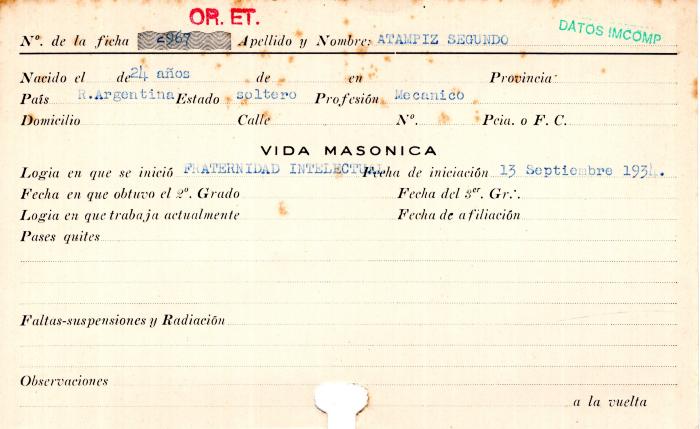 OR. ET.
DATOS IMCOMP
Nº. de la ficha 2967 Apellido y Nombre: ATAMPIZ SEGUNDO
Nacido el de 24 años de en Provincia
País R.Argentina Estado soltero Profesión Mecanico
Domicilio Calle Nº. Pcia. o F. C.
VIDA MASONICA
Logia en que se inició FRATERNIDAD INTELECTUAL Fecha de iniciación 13 Septiembre 1934.
Fecha en que obtuvo el 2º. Grado Fecha del 3er. Gr∴.
Logia en que trabaja actualmente Fecha de afiliación
Pases quites
Faltas-suspensiones y Radiación
Observaciones
a la vuelta